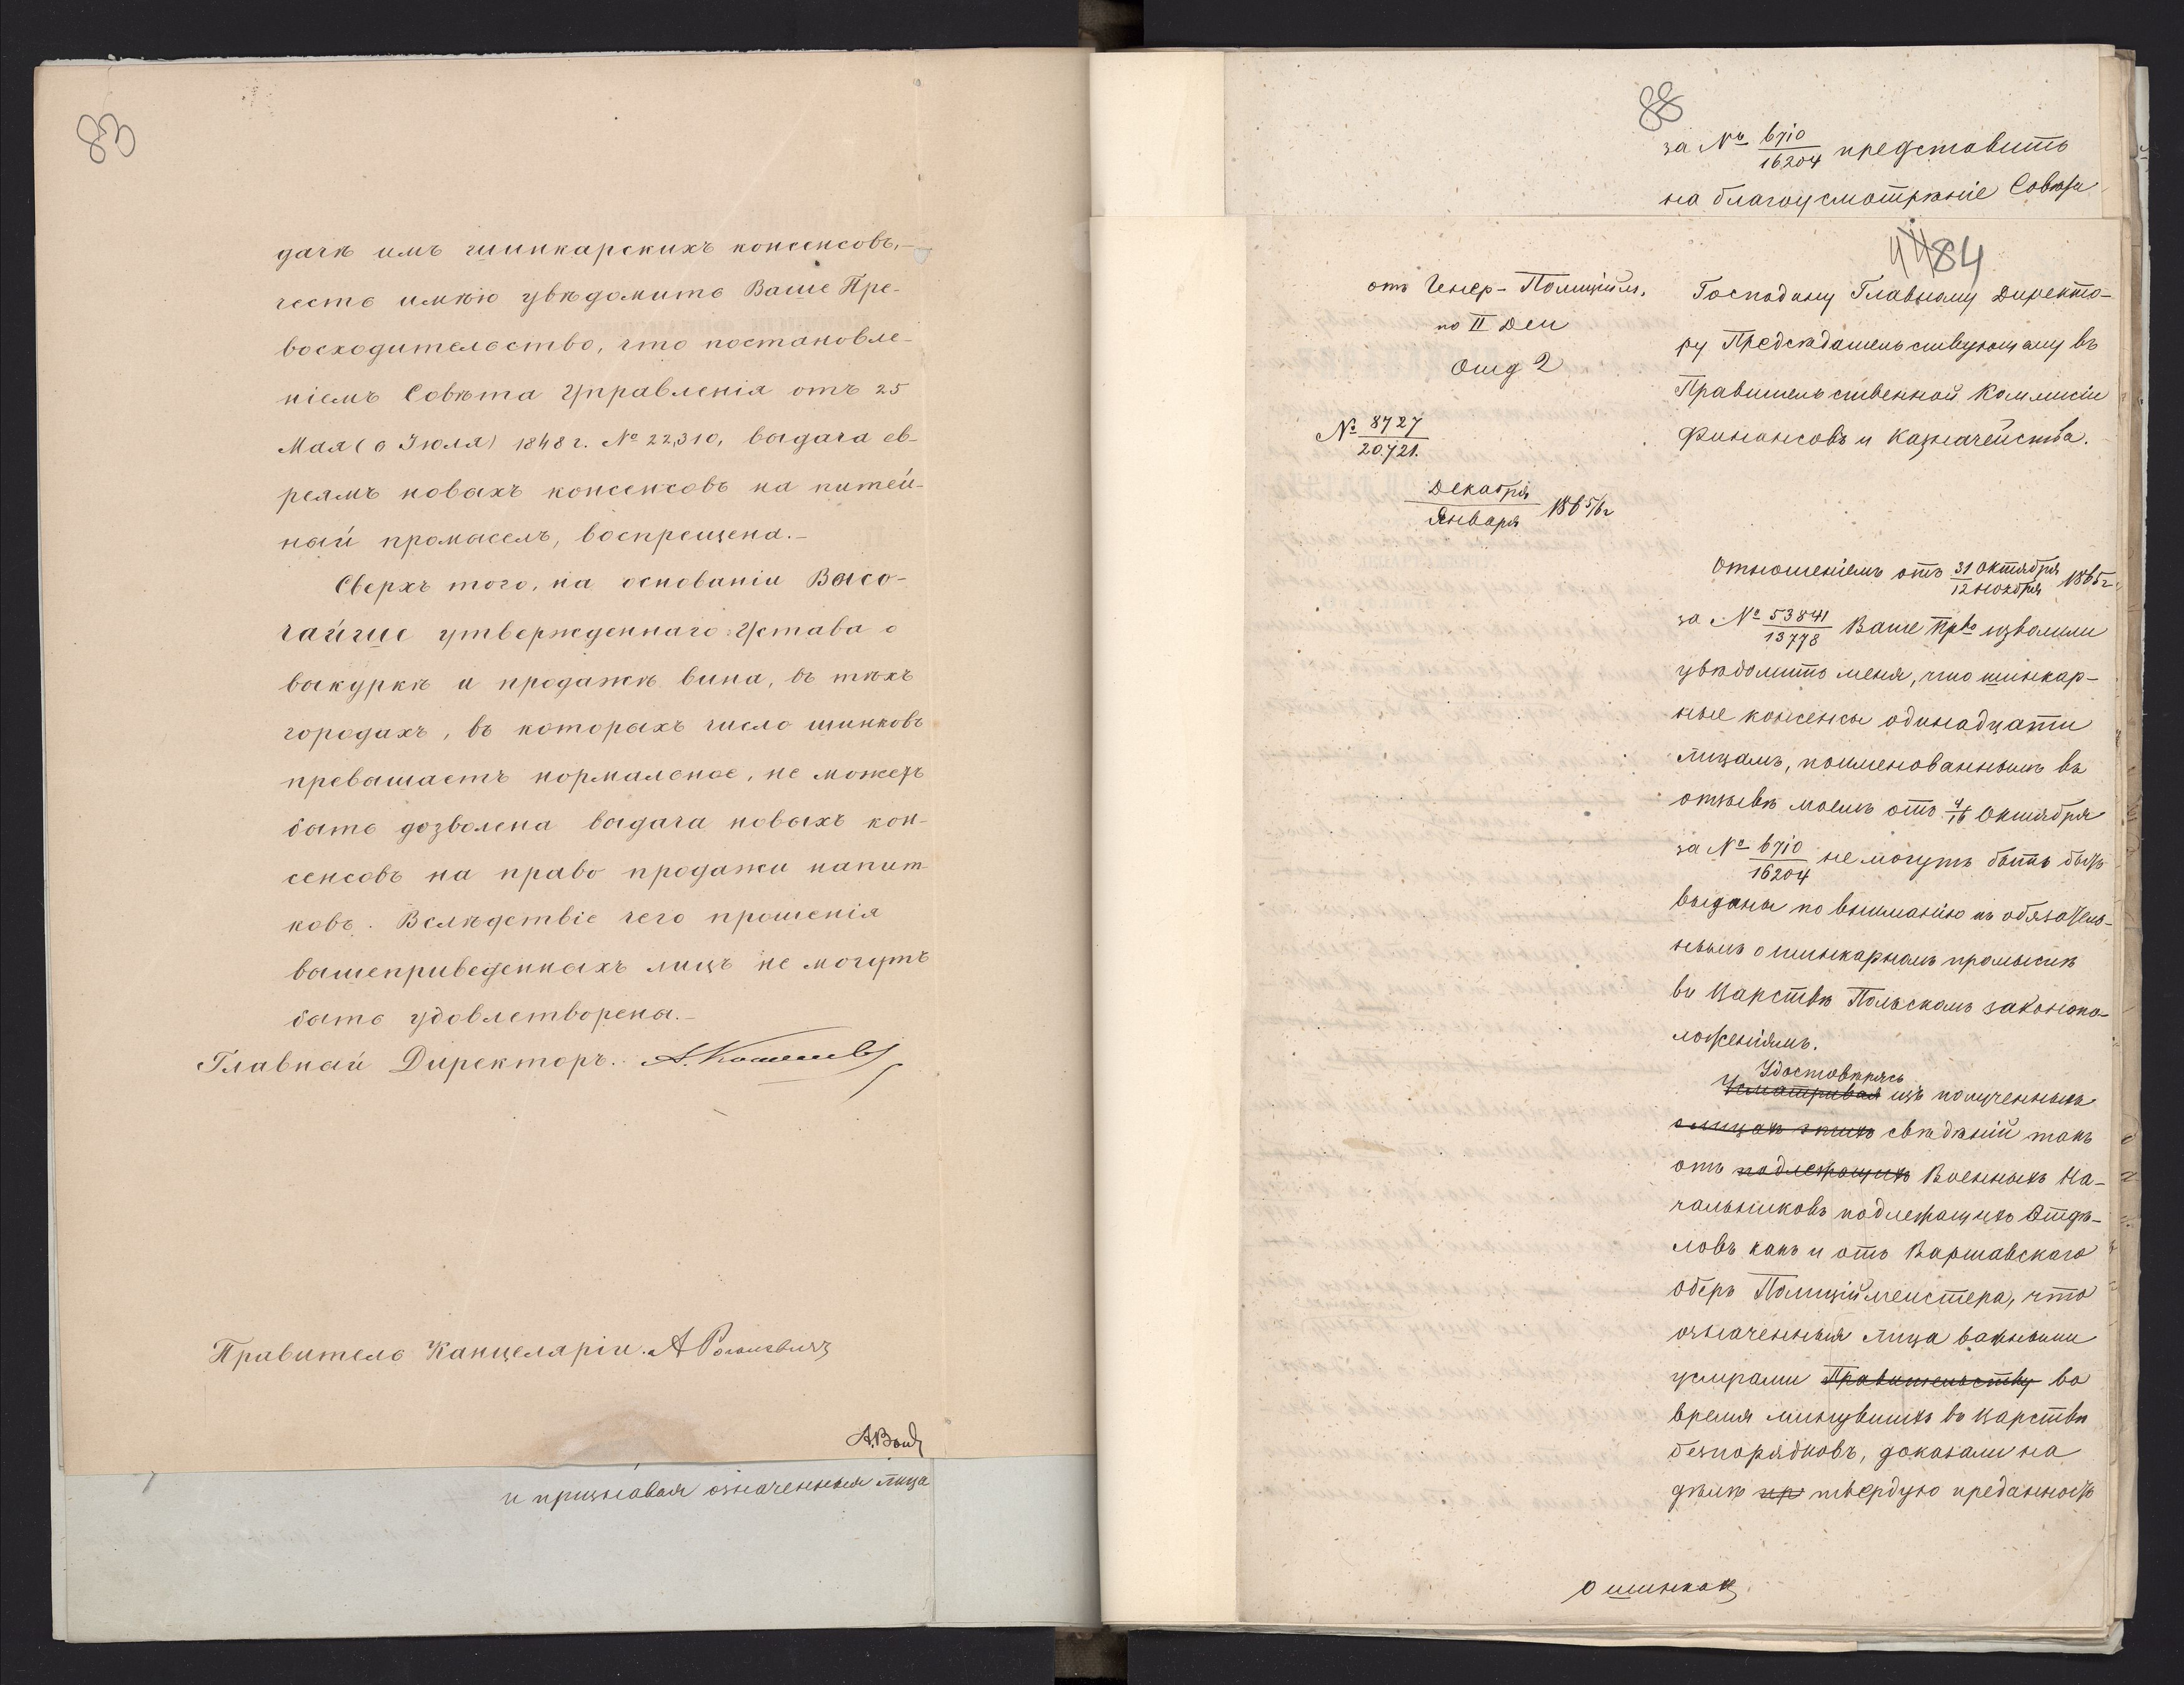 83
дачѣ имъ шинкарскихъ консенсовъ,-
честь имѣю увѣдомить Ваше Пре-
восходительство, что постановле-
ніемъ Совѣта Управленія отъ 25
Мая (6 Іюля) 1848 г. № 22,310, выдача ев-
реямъ новыхъ консенсовъ на питей-
ный промыселъ, воспрещена.-
Сверхъ того, на основаніи Высо-
чайше утвержденнаго Устава о
выкуркѣ и продажѣ вина, въ тѣхъ
городахъ, въ которыхъ число шинковъ
превышаетъ нормальное, не можетъ
быть дозволена выдача новыхъ кон-
сенсовъ на право продажи напит-
ковъ. Вслѣдствіе чего прошенія
вышеприведенныхъ лицъ не могутъ
быть удовлетворены.-
Главный Директоръ. А. Кошелев
Правитель Канцеляріи. А
и признавая означенныя лица
88
за № 6710/16204 представить
на благоусмотрѣніе
84
отъ Генер-Полиціймъ.
по II Деп
Отд 2
№ 8727/20.721.
Декабря/Января 1865/6 г
Господину Главному Директо-
ру Предсѣдательствующему въ
Правительственной Коммисіи
Финансовъ и Казначейства.
Отношеніемъ отъ 31 Октября/12 Ноября 1865 г.
за № 53841/13778 Ваше Прво изволили
увѣдомить меня, что шинкар-
ные консенсы одинадцати
лицамъ, поименованнымъ въ
отзывѣ моемъ отъ 4/16 Октября
за № 6710/16204 не могутъ быть
выданы по вниманію къ обязатель-
нымъ о шинкарномъ промыслѣ
въ Царствѣ Польскомъ законопо-
ложеніямъ.
Удостовѣрясь
Усматривая изъ полученныхъ
свѣдѣній какъ
отъ подлежащихъ Военныхъ На-
чальниковъ подлежащихъ Отдѣ-
ловъ какъ и отъ Варшавскаго
Оберъ Полиціймейстера, что
означенныя лица важными
услугами Правительству во
время минувшихъ въ Царствѣ
безпорядковъ, доказали на
дѣлѣ пр твердую преданность
о шинкахъ